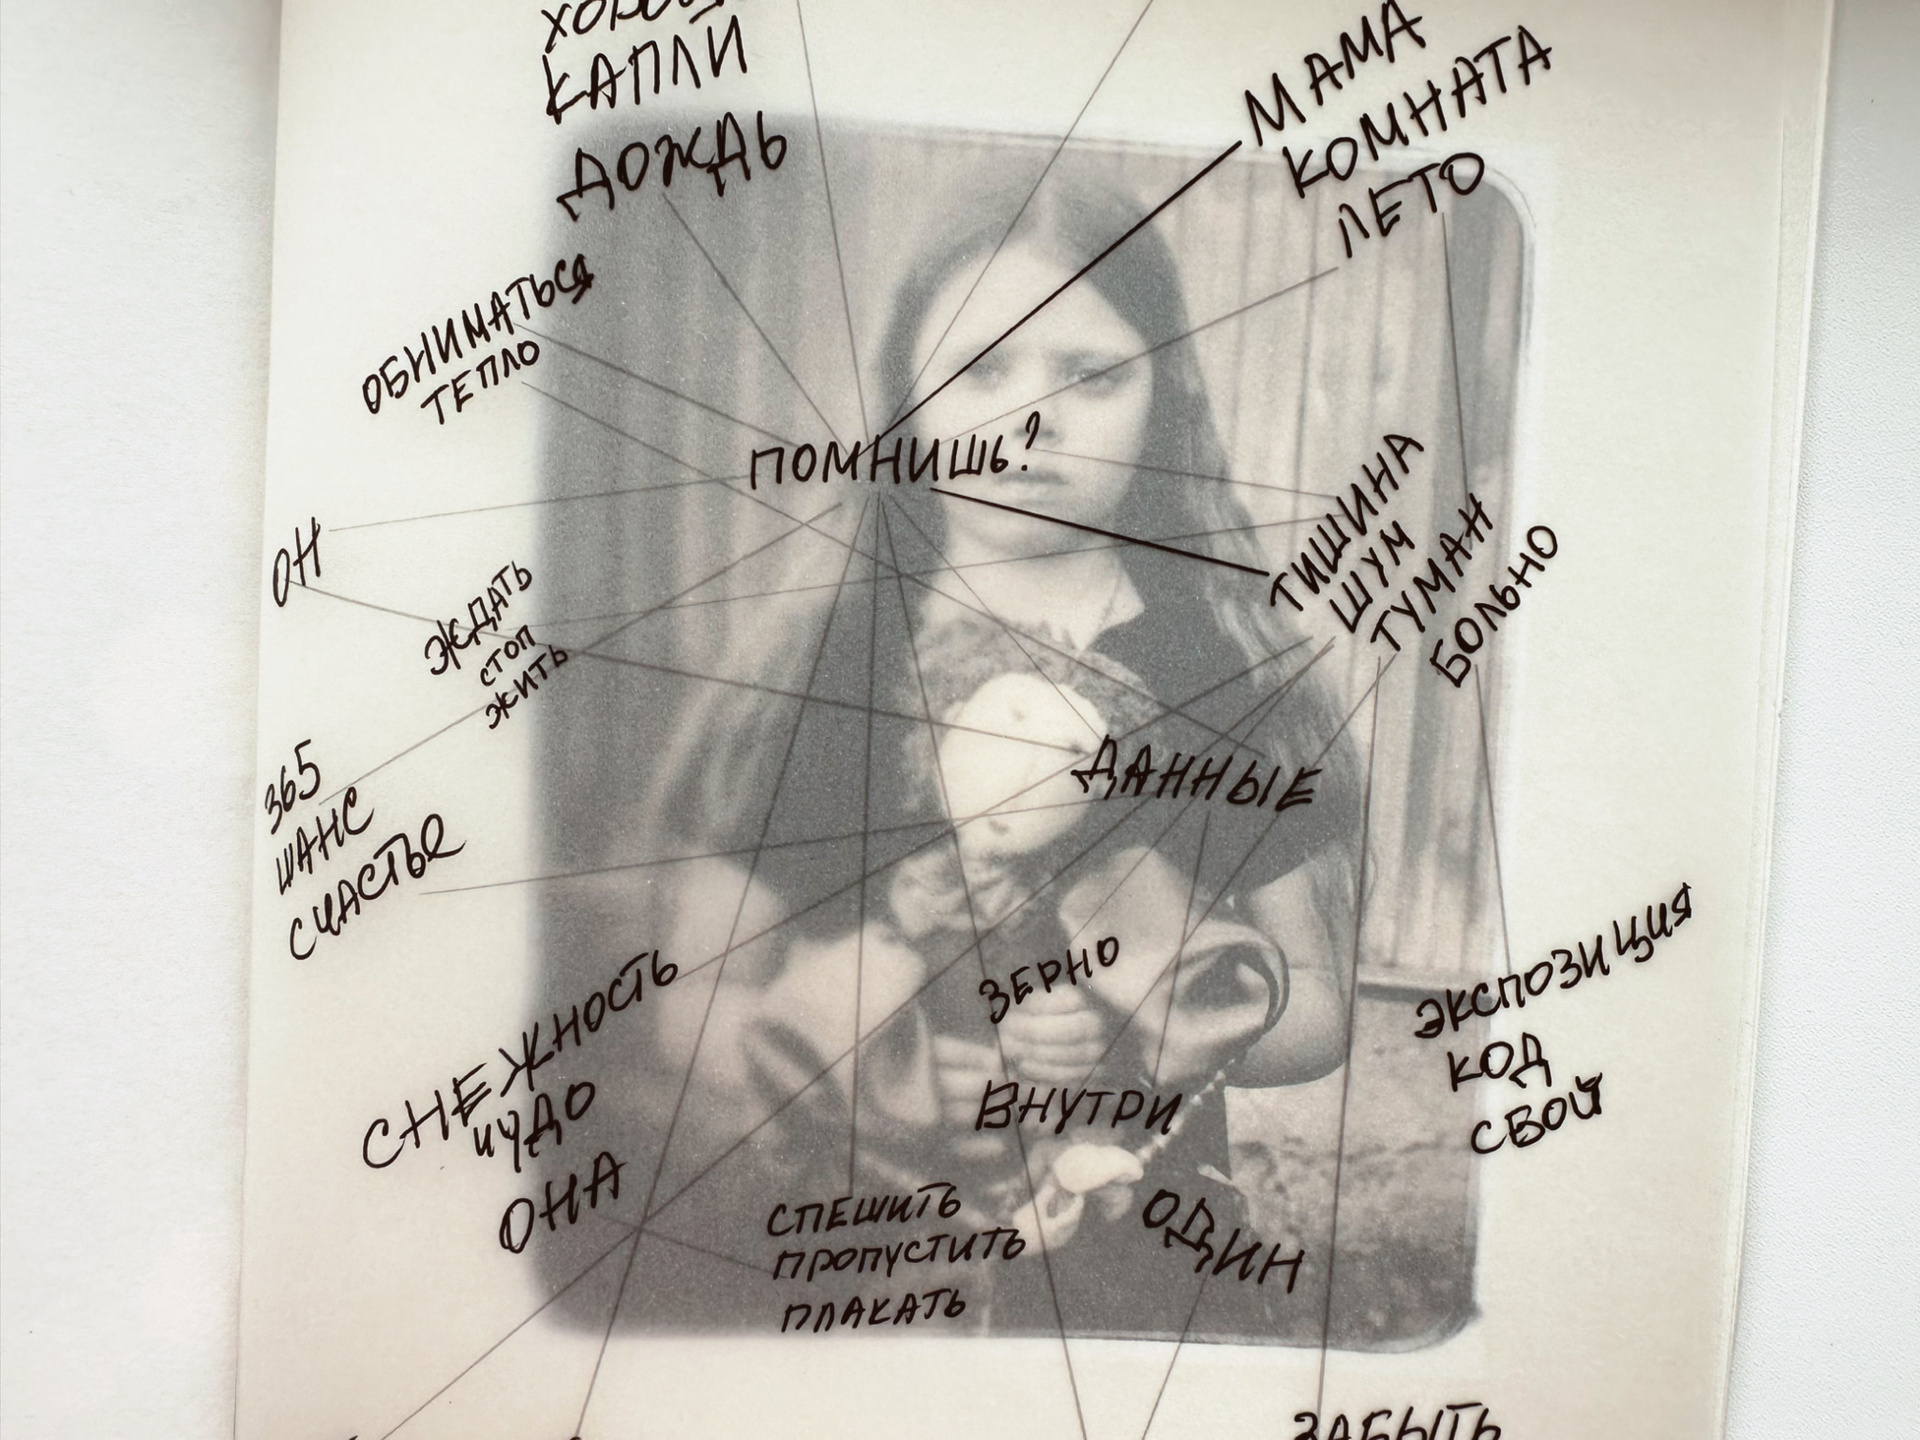 КАПЛИ
ДОЖДЬ
МАМА
КОМНАТА
ЛЕТО
ОБНИМАТЬСЯ
ТЕПЛО
ПОМНИШЬ?
ТИШИНА
ШУМ
ТУМАН
БОЛЬНО
ОН
ЖДАТЬ
СТОП
ЖИТЬ
365
ШАНС
СЧАСТЬЕ
ДАННЫЕ
СНЕЖНОСТЬ
ЧУДО
ОНА
ЗЕРНО
ВНУТРИ
ЭКСПОЗИЦИЯ
КОД
СВОЙ
СПЕШИТЬ
ПРОПУСТИТЬ
ПЛАКАТЬ
ОДИН
ЗАБЫТЬ